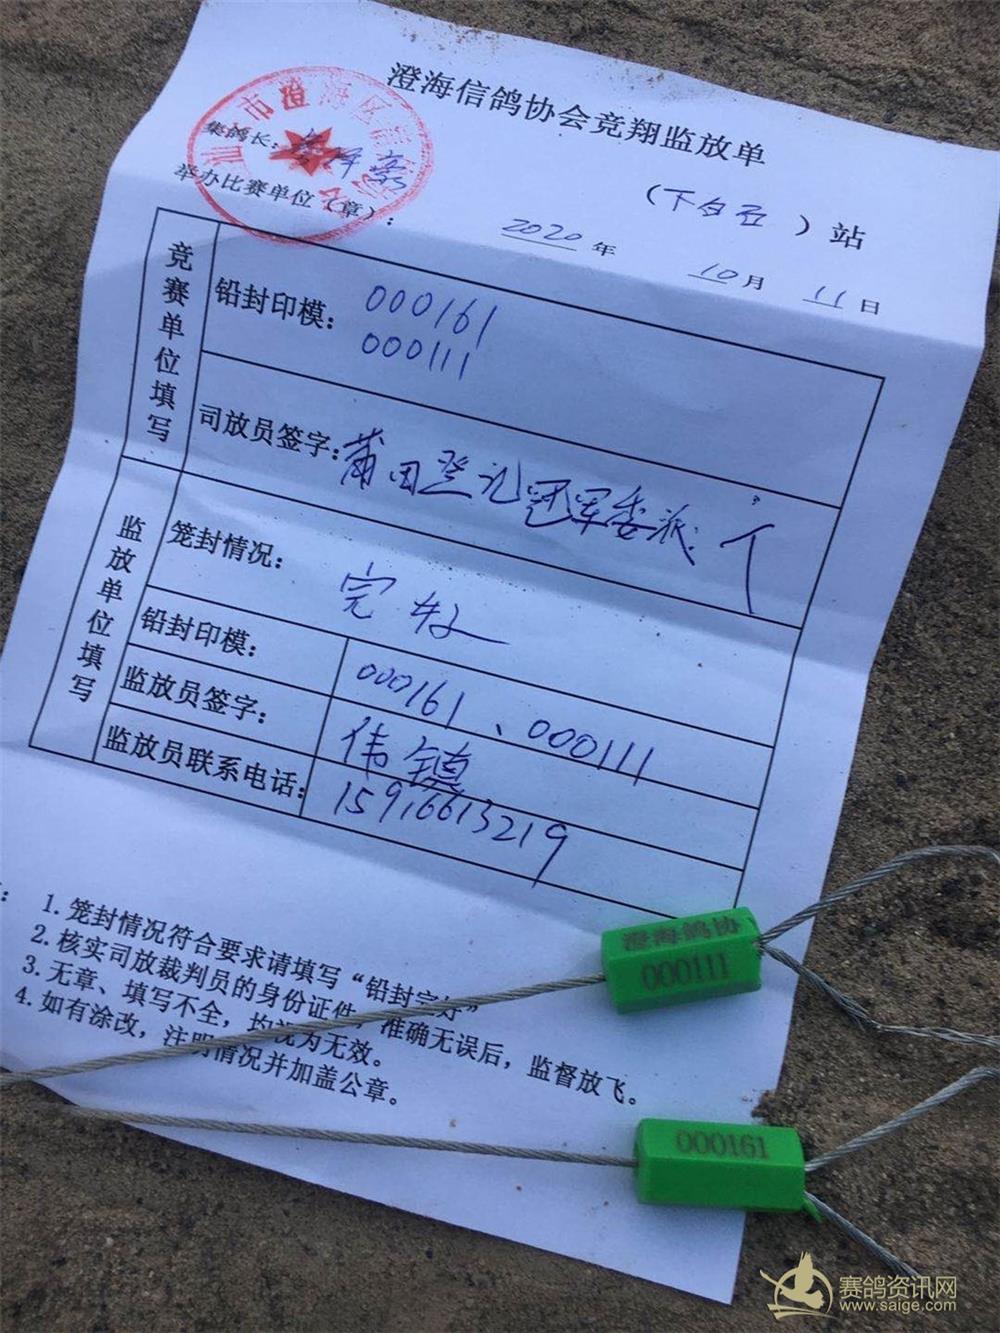 澄海信鸽协会竞翔监放单
市澄海区信鸽
(下白石)站
集鸽长:
举办比赛单位(章):
2020年 10月 11日
竞赛单位填写
铅封印模: 000161
000111
司放员签字: 莆田登记冠军委派
监放单位填写
笼封情况: 完好
铅封印模: 000161、000111
监放员签字: 伟镇
监放员联系电话: 15916613219
1.笼封情况符合要求请填写“铅封完好”
2.核实司放裁判员的身份证件,准确无误后,监督放飞。
3.无章、填写不全,均视为无效。
4.如有涂改,注明情况并加盖公章。
澄海鸽协
000111
000161
赛鸽资讯网
www.saige.com